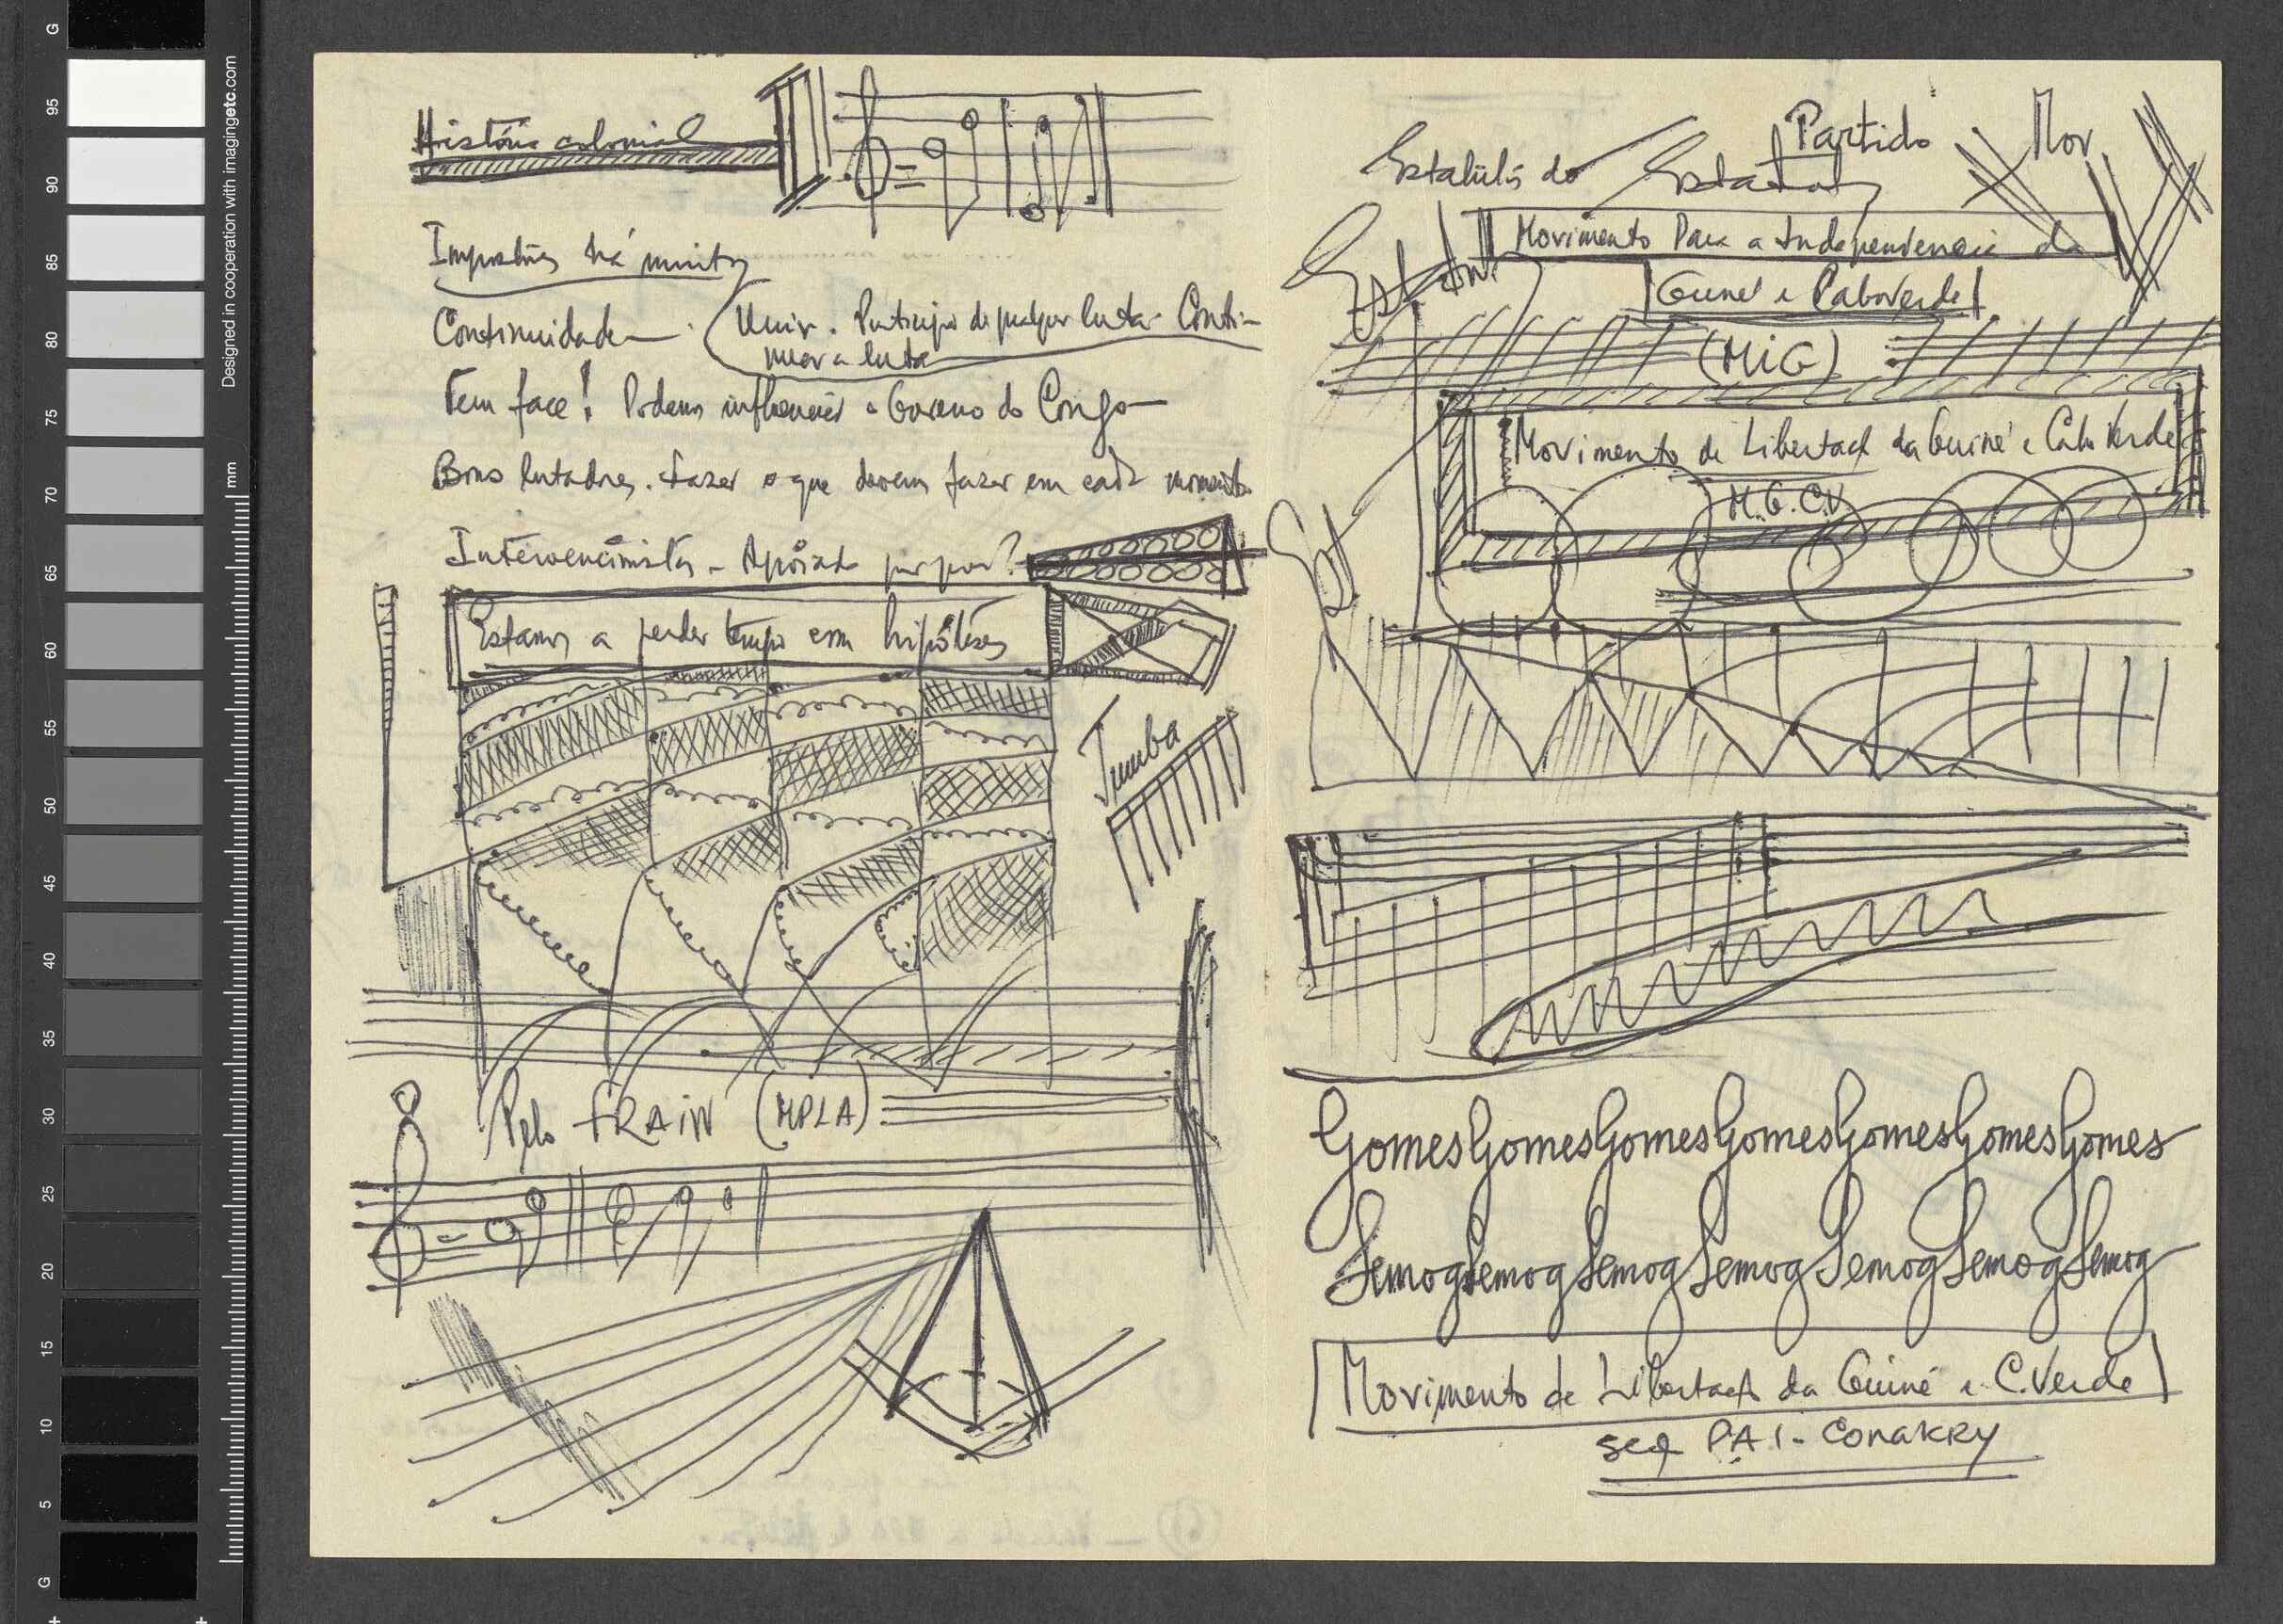 História colonial
Impostos há muitos
Continuidade - Unir. Princípio de qualquer luta. Conti-
nuar a luta
Tem face! Podemos influenciar o Governo do Congo -
Bons lutadores. Fazer o que devem fazer em cada momento
Intervencionistas - Apoiado por quem?
Estamos a perder tempo com hipóteses
Tumba
Pelo FRAIN (MPLA)
Partido Mov
do Estatutos
Movimento Para a Independência da
Guiné e CaboVerde
(MiG)
Movimento de Libertação da Guiné e Cabo Verde
M.G.C.V
Est
GomesGomesGomesGomesGomesGomesGomes
SemogSemogSemogSemogSemogSemogSemog
Movimento de Libertação da Guiné e C.Verde
PAI - CONAKRY
G 95 90 85 80 75 70 65 60 55 50 45 40 35 30 25 20 15 10 5 G
mm
Designed in cooperation with imagingetc.com